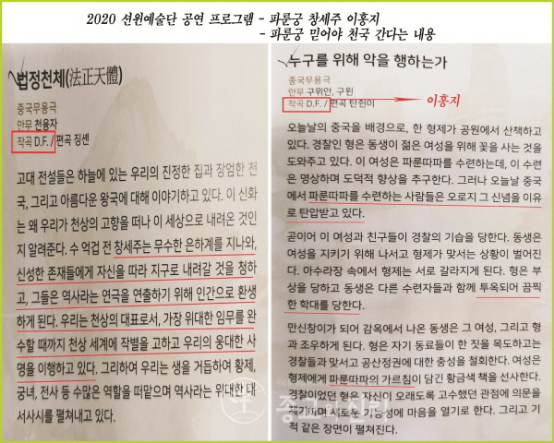 2020 션윈예술단 공연 프로그램 - 파룬궁 창세주 이홍지
- 파룬궁 믿어야 천국 간다는 내용
법정천체(法正天體)
중국무용극
안무 천융자
작곡 D.F. / 편곡 징셴
고대 전설들은 하늘에 있는 우리의 진정한 집과 장엄한 천
국, 그리고 아름다운 왕국에 대해 이야기하고 있다. 이 신화
는 왜 우리가 천상의 고향을 떠나 이 세상으로 내려온 것인
지 알려준다. 수 억겁 전 창세주는 무수한 은하계를 지나와,
신성한 존재들에게 자신을 따라 지구로 내려갈 것을 청하
고, 그들은 역사라는 연극을 연출하기 위해 인간으로 환생
하게 된다. 우리는 천상의 대표로서, 가장 위대한 임무를 완
수할 때까지 천상 세계에 작별을 고하고 우리의 웅대한 사
명을 이행하고 있다. 그리하여 우리는 생을 거듭하여 황제,
궁녀, 전사 등 수많은 역할을 떠맡으며 역사라는 위대한 대
서사시를 펼쳐내고 있다.
누구를 위해 악을 행하는가
중국무용극
안무 구위안, 구윈
작곡 D.F. / 편곡 탄쥔이
이홍지
오늘날의 중국을 배경으로, 한 형제가 공원에서 산책하고
있다. 경찰인 형은 동생이 젊은 여성을 위해 꽃을 사는 것을
도와주고 있다. 이 여성은 파룬따파를 수련하는데, 이 수련
은 명상하며 도덕적 향상을 추구한다. 그러나 오늘날 중국
에서 파룬따파를 수련하는 사람들은 오로지 그 신념을 이유
로 탄압받고 있다.
곧이어 이 여성과 친구들이 경찰의 기습을 당한다. 동생은
여성을 지키기 위해 나서고 형제가 맞서는 상황이 벌어진
다. 아수라장 속에서 형제는 서로 갈라지게 된다. 형은 부
상을 당하고 동생은 다른 수련자들과 함께 투옥되어 끔찍
한 학대를 당한다.
만신창이가 되어 감옥에서 나온 동생은 그 여성, 그리고 형
과 조우하게 된다. 형은 자기 동료들이 한 짓을 목도하고는
경찰들과 맞서고 공산정권에 대한 충성을 철회한다. 여성은
형제에게 파룬따파의 가르침이 담긴 황금색 책을 선사한다.
경찰이었던 형은 자신이 오래도록 고수했던 관점에 의문을
제기하며 새로운 가능성에 마음을 열기로 한다. 그리고 기
적 같은 장면이 펼쳐진다.